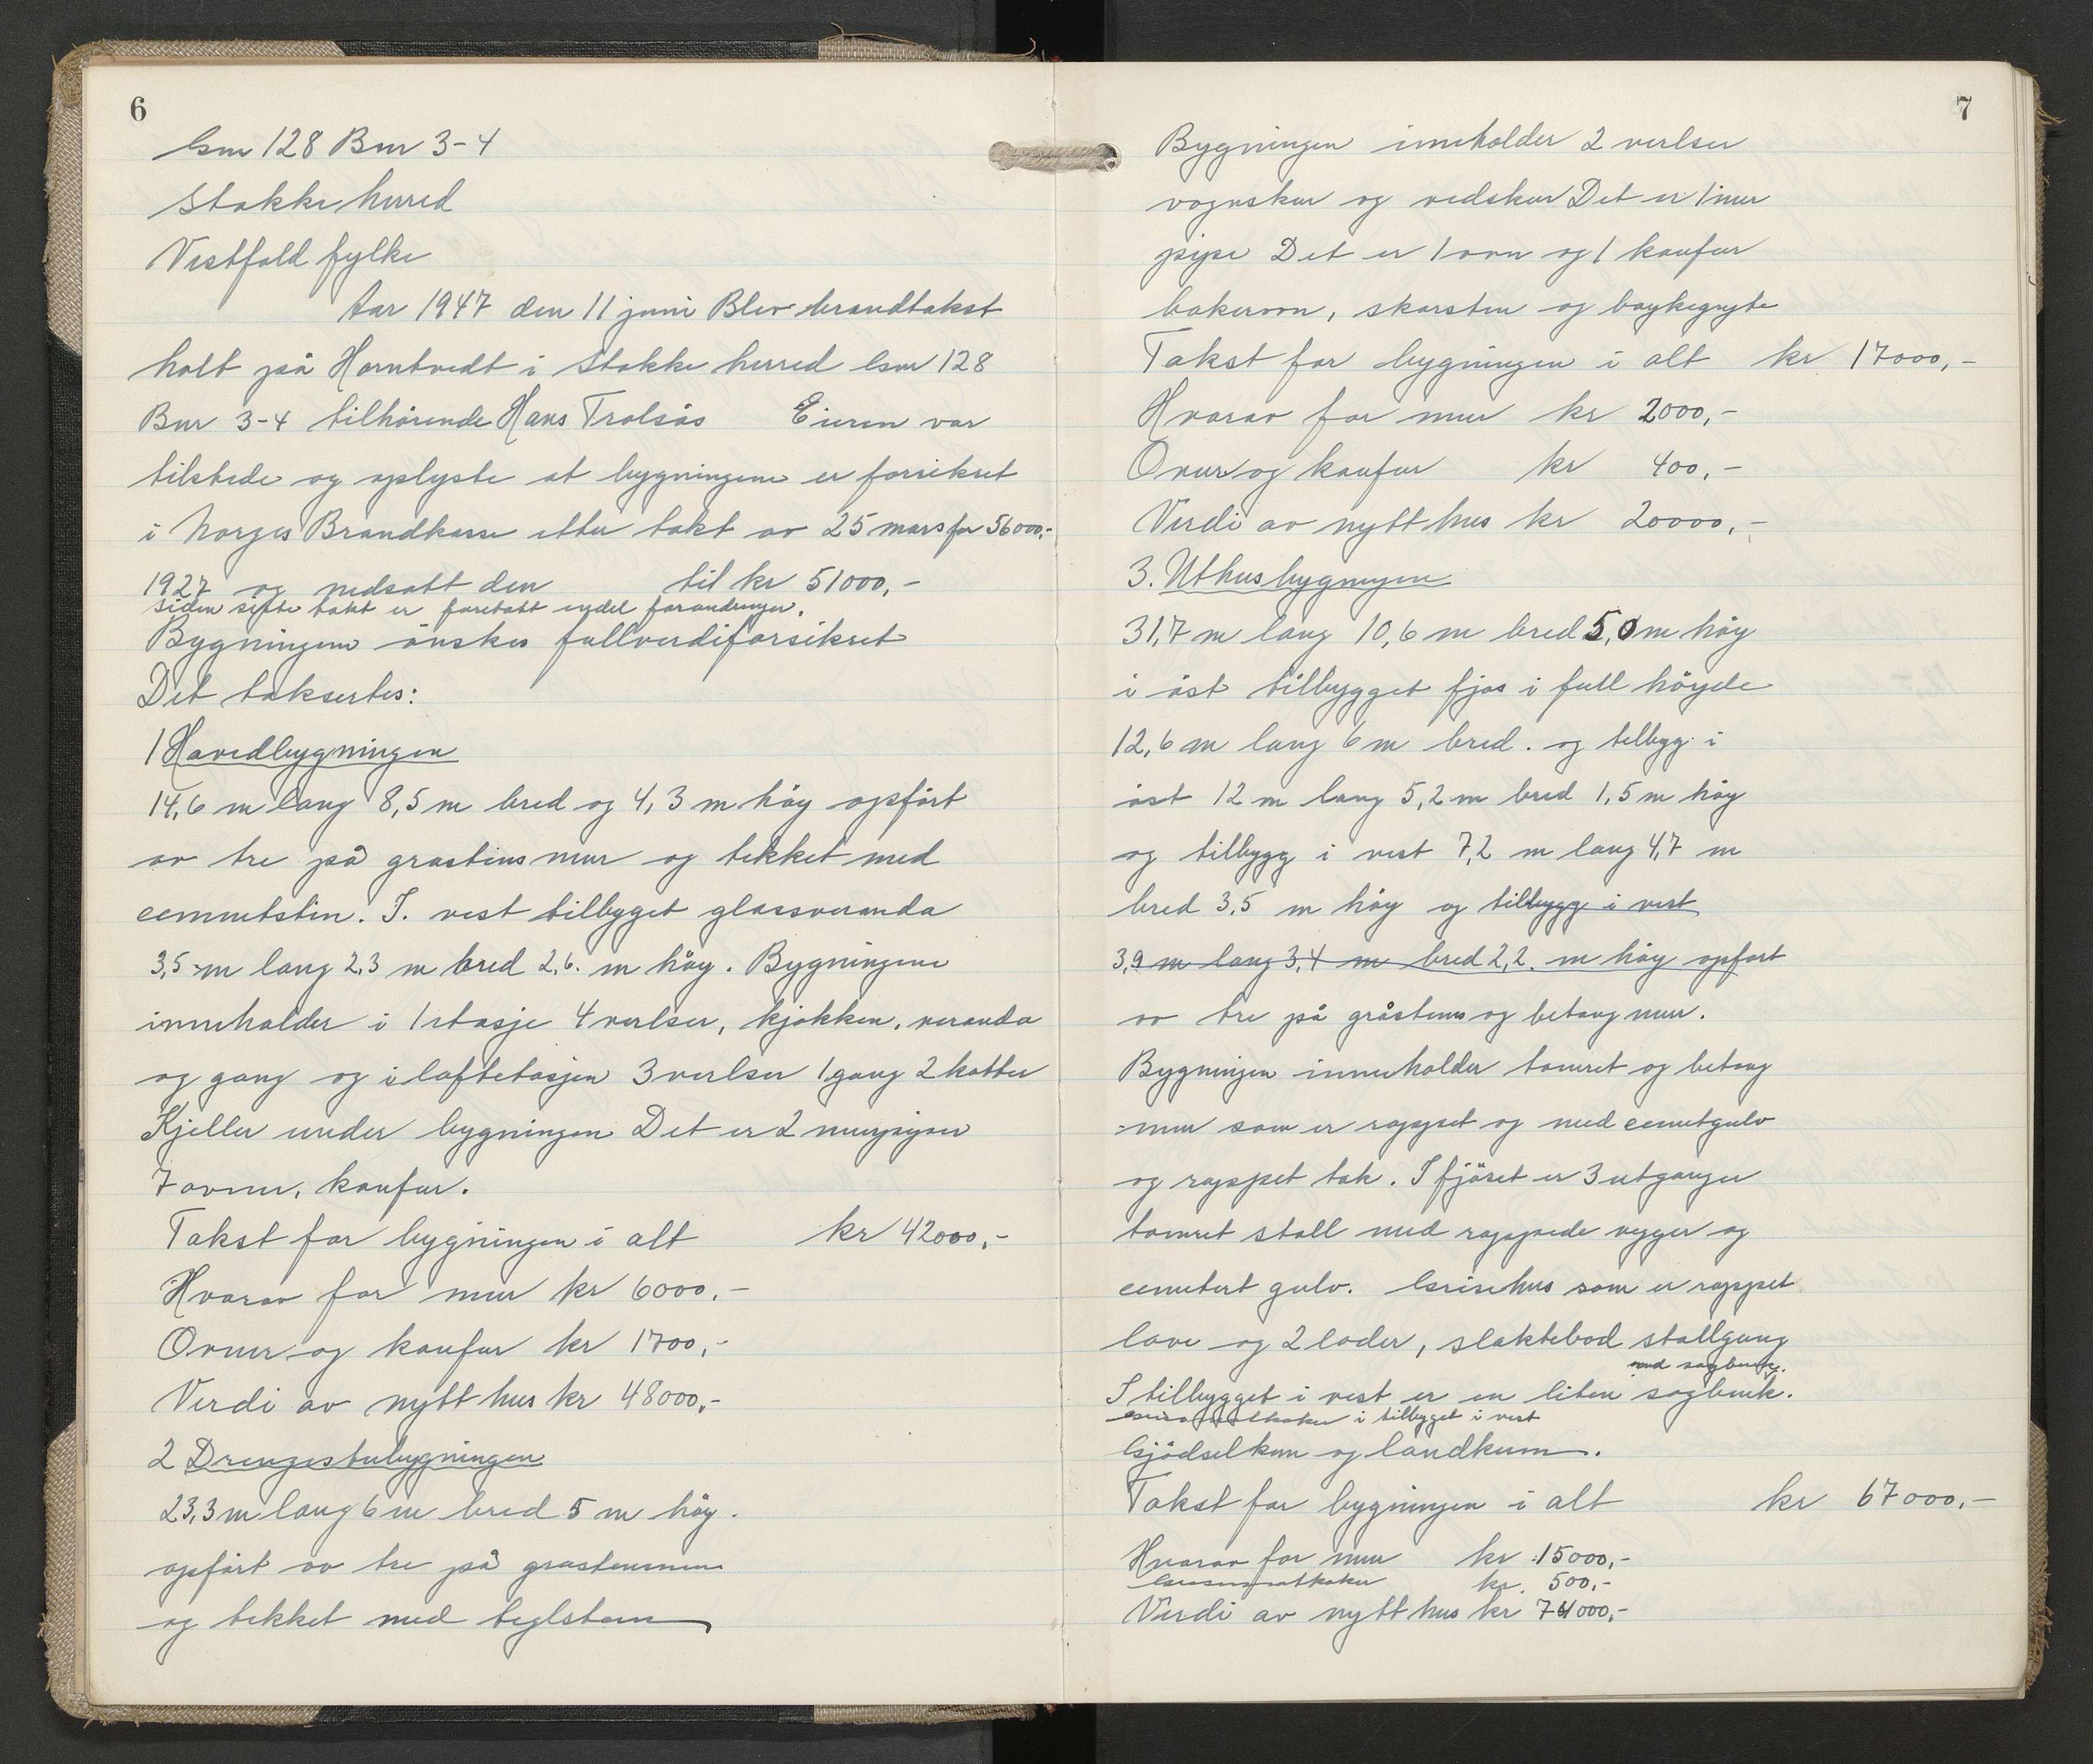 6
Gnr 128 Bnr 3-4
Stokke herred
Vestfold fylke
Aar 1947 den 11 juni Blev brandtakst
holt på Horntvedt i Stokke herred Gnr 128
Bnr 3-4 tilhörende Hans Trolsås Eieren var
tilstede og oplyste at bygningene er forsikret
i Norges Brandkasse etter takt av 25 mars for 56000,-
1927 og nedsatt den til kr 51000,-
siden siste takt er foretatt endel forandringer.
Bygningene önskes fullverdiforsikret
Det taksertes:
1 Hovedbygningen
14,6 m lang 8,5 m bred og 4,3 m höy opfört
av tre på grastens mur og tekket med
cementstin. I. vest tilbygget glassveranda
3,5 m lang 2,3 m bred 2,6. m höy. Bygningene
inneholder i 1 etasje 4 verlser, kjökken, veranda
og gang og i loftetasjen 3 verlser 1 gang 2 kotter
Kjeller under bygningen Det er 2 murpiper
7 ovner, komfur.
Takst for bygningen i alt kr 42000,-
Hvorav for mur kr 6000,-
Ovner og komfur kr 1700,-
Verdi av nytt hus kr 48000,-
2 Drengestubygningen
23,3 m lang 6 m bred 5 m höy.
opfört av tre på grastensmur
og tekket med teglsten
7
Bygningen inneholder 2 verlser
vognskur og vedskur Det er 1 mur
pipe Det er 1 ovn og 1 komfur
bakerovn, skorsten og bryggegryte
Takst for bygningen i alt kr 17000,-
Hvorav for mur kr 2000,-
Ovner og komfur kr 400,-
Verdi av nytt hus kr 20000,-
3. Uthusbygningen
31,7 m lang 10,6 m bred 5,0 m höy
i öst tilbygget fjös i full höyde
12,6 m lang 6 m bred. og tilbyg i
öst 12 m lang 5,2 m bred 1,5 m höy
og tilbygg i vest 7,2 m lang 4,7 m
bred 3,5 m höy og tilbygg i vest
3,9 m lang 3,4 m bred 2,2. m höy opfört
av tre på gråstens og betong mur.
Bygningen innerholder tömret og betong
mur som er rappet og med cemetgulv
og rappet tak. I fjöset er 3 utganger
tömret stall med rappede vegger og
cemetert gulv. Grisehus som er rappet
love og 2 loder, slaktebod stallgang
med sagbenk.
I tilbygget i vest er en liten sagbenk.
i tilbygget i vest
Gjödselkum og landkum.
Takst for bygningen i alt kr 67000,-
Hvorav for mur kr 15000,-
kr. 500,-
Verdi av nytt hus kr 74000,-